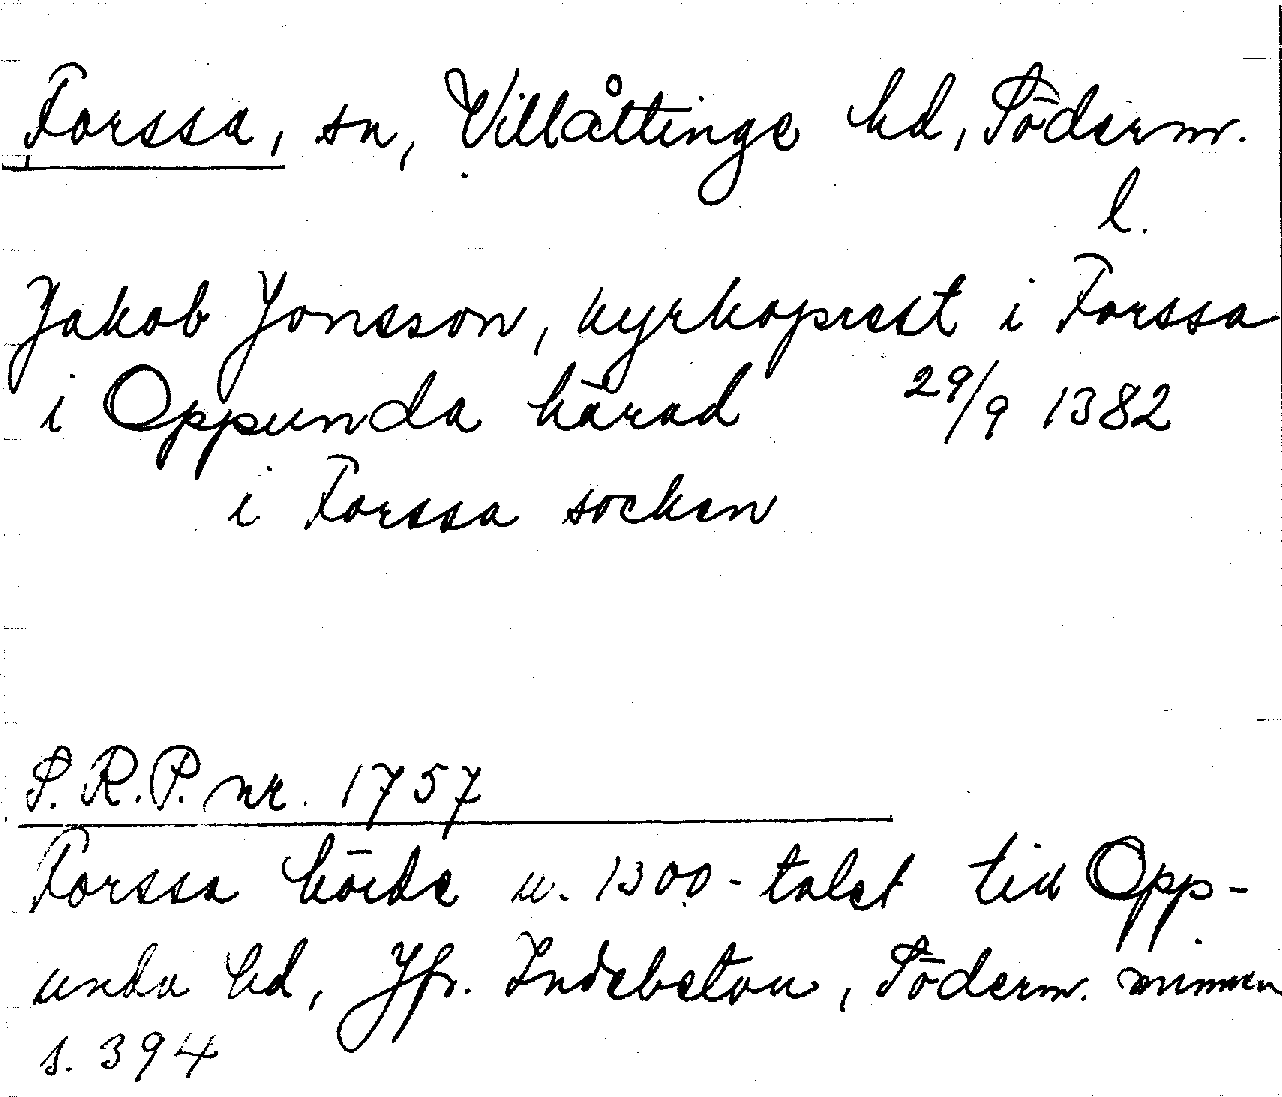 Forssa, sn, Villåttinge hd, Söderm.
l.
Jakob Jonsson, kyrkoprest i Forssa
i Oppunda härad 29/9 1382
i Forssa socken
S.R.P. nr. 1757
Forssa hörde u. 1300-talet till Opp-
unda hd, Jfr. Indebetou, Söderm. minnen
s. 394